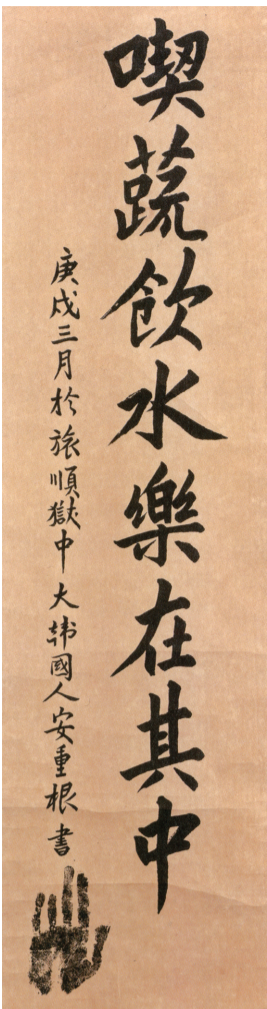 喫蔬飮水樂在其中
庚戌三月於旅順獄中大韓國人安重根書